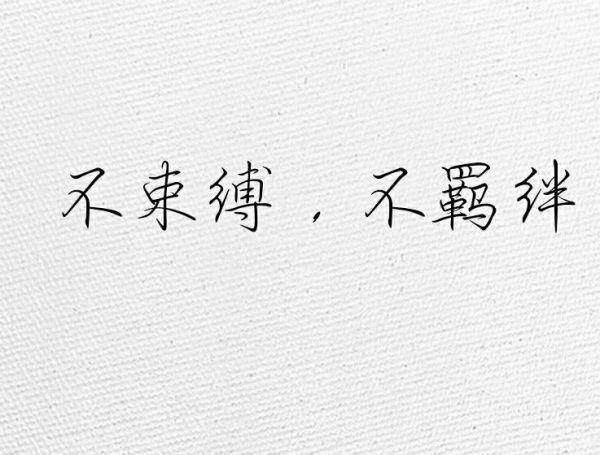 不束缚，不羁绊